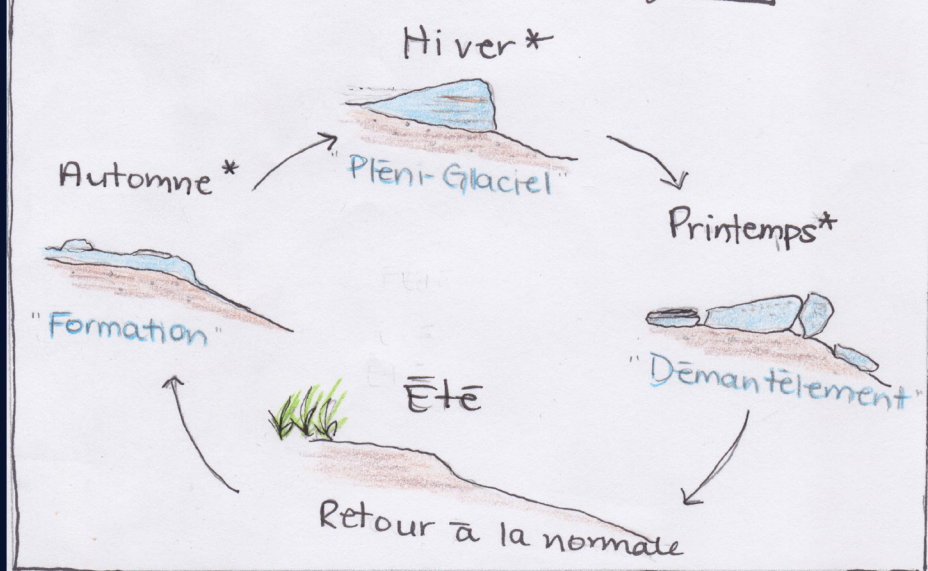 Hiver*
"Pléni-Glaciel"
Automne*
Printemps*
"Formation"
"Démantèlement"
Été
Retour à la normale